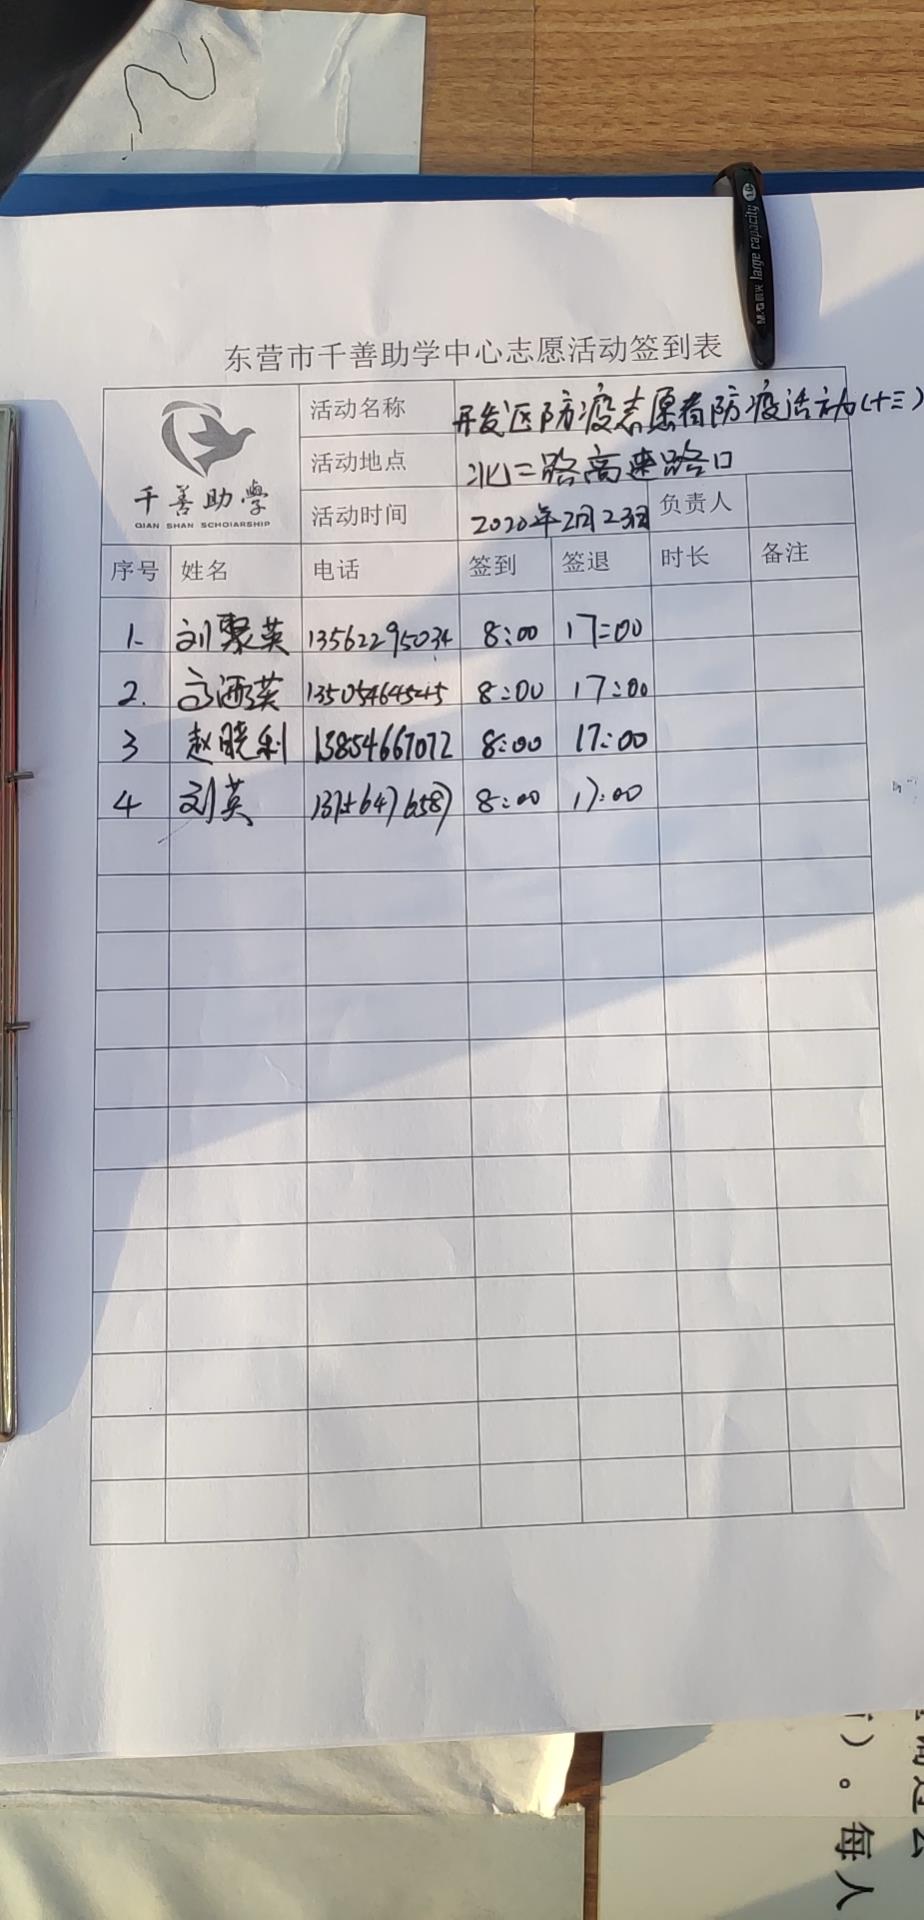 M&G 晨光 large capacity 1.0
东营市千善助学中心志愿活动签到表
千善助學
QIAN SHAN SCHOIARSHIP
活动名称 开发区防疫志愿者防疫活动(十三)
活动地点 北二路高速路口
活动时间 2020年2月23日 负责人
序号 姓名 电话 签到 签退 时长 备注
1. 刘聚英 13562295034 8:00 17:00
2. 8:00 17:00
3 赵晓利 13854667072 8:00 17:00
4 刘英 8:00 17:00
)。每人